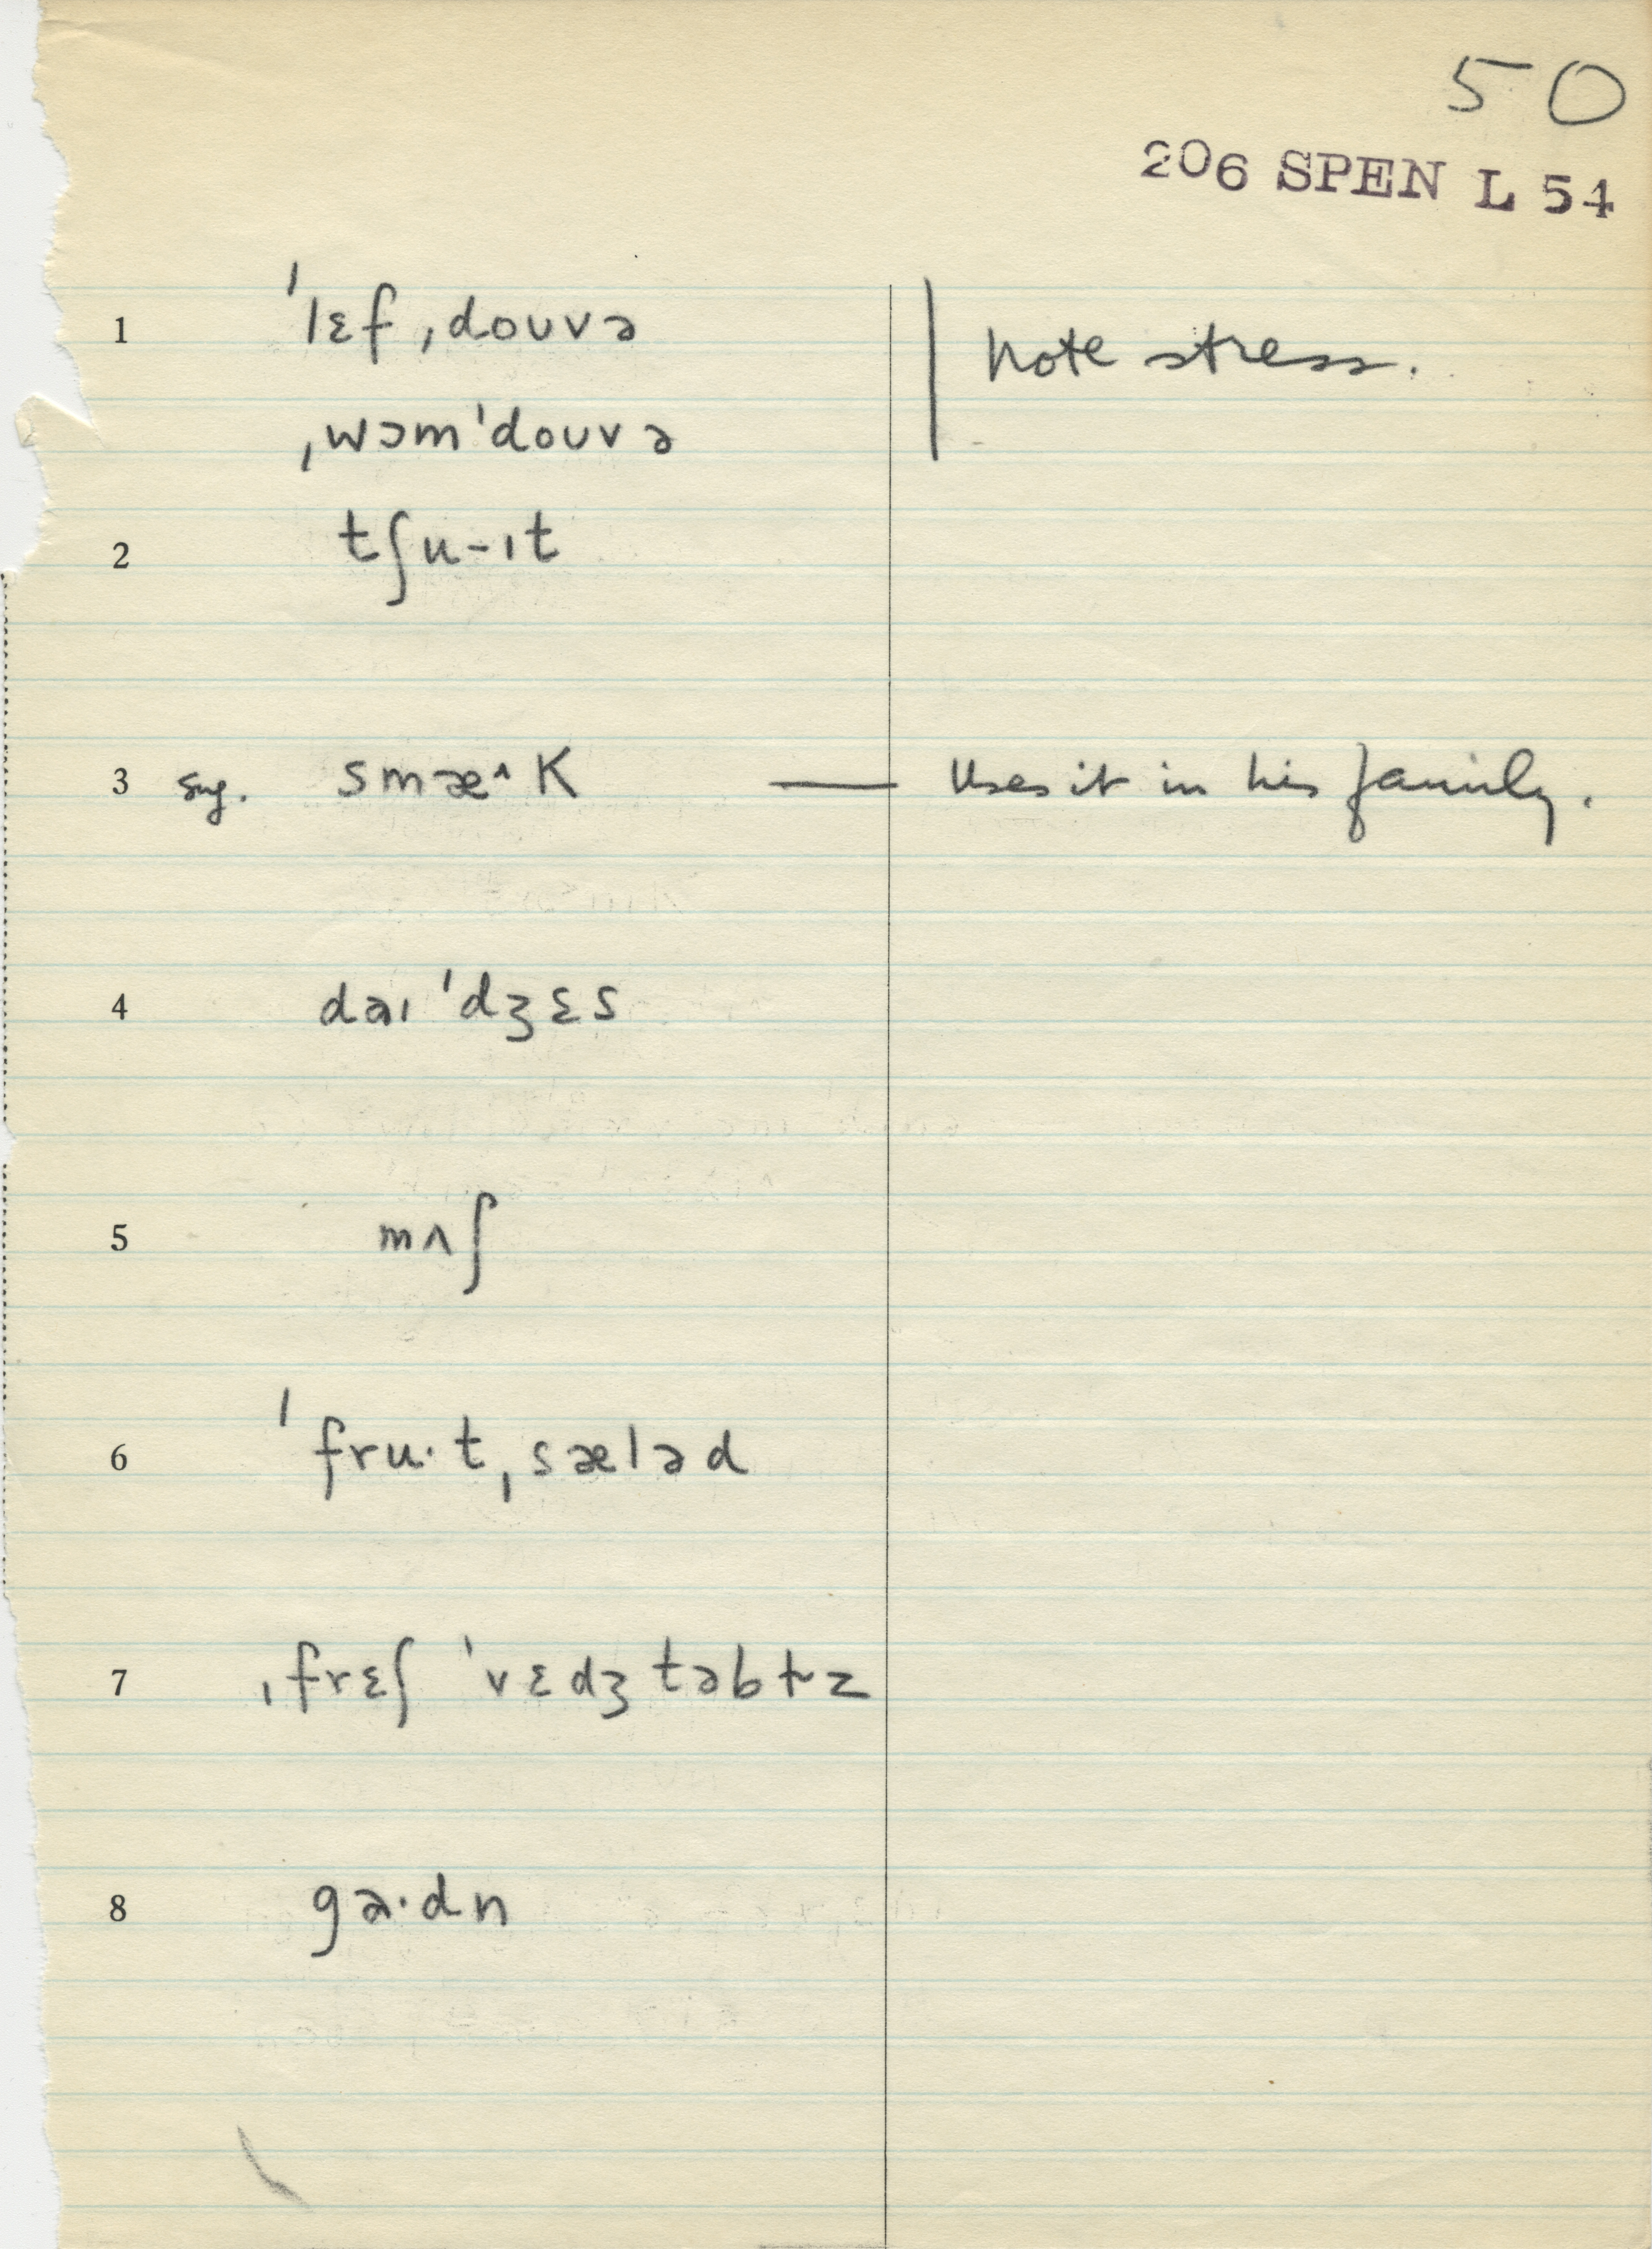 50
206 SPEN L 54
1 ˈlɛf ˌdouvə | Note stress.
ˌwɔmˈdouvə
2 tʃu-ɪt
3 sug. smæ^k — Uses it in his family.
4 daɪ ˈdʒɛs
5 mʌʃ
6 ˈfru·t ˌsæləd
7 ˌfrɛʃ ˈvɛdʒtəbɫz
8 ga·dn